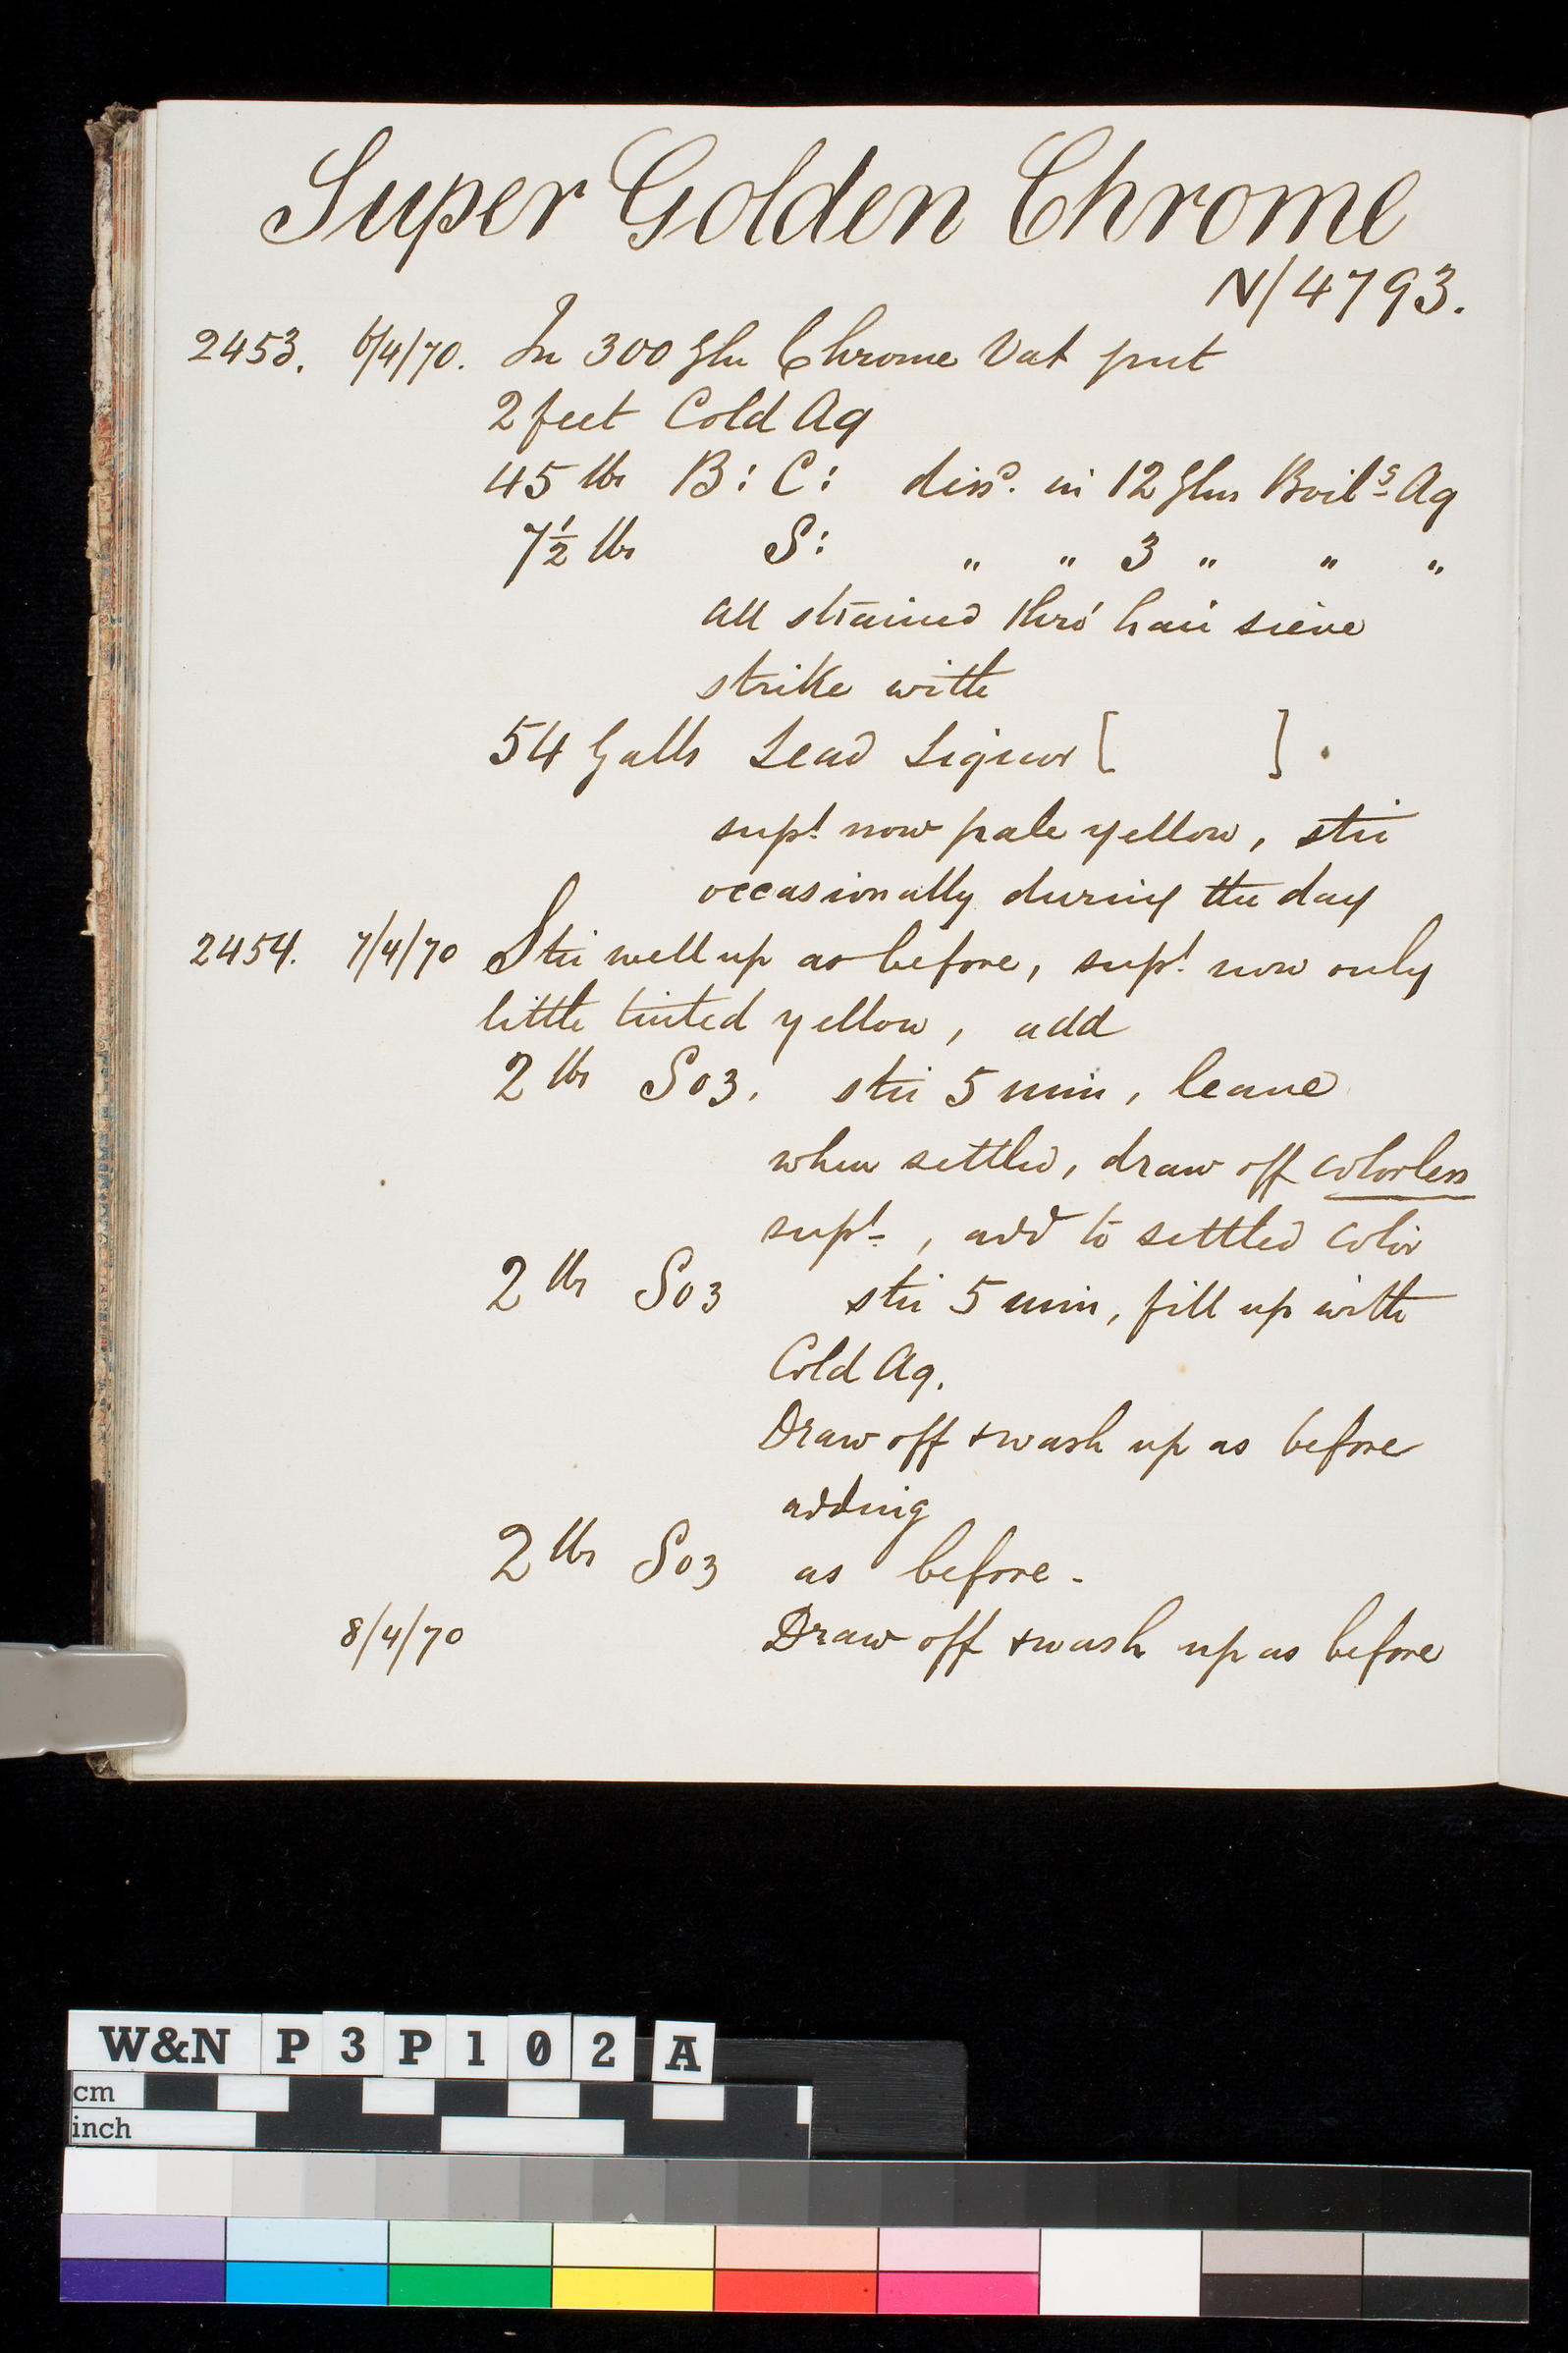 Super Golden Chrome
N/4793.
2453. 6/4/70. In 300 Gln Chrome Vat put
2 feet Cold Aq
45 lbs B: C: dissd. in 12 Glns Boilg Aq
7½ lbs S: " " 3 " " "
all strained thro' hair sieve
strike with
54 Galls Lead Liquor [ ].
supt now pale yellow, stir
occasionally during the day
2454. 7/4/70 Stir well up as before, supt now only
little tinted yellow, add
2 lbs So3. stir 5 min, leave
when settled, draw off colorless
supt, add to settled color
2 lbs So3 stir 5 min, fill up with
Cold Aq.
Draw off + wash up as before
adding
2 lbs So3 as before.
8/4/70 Draw off + wash up as before
W&N P3P102A
cm
inch